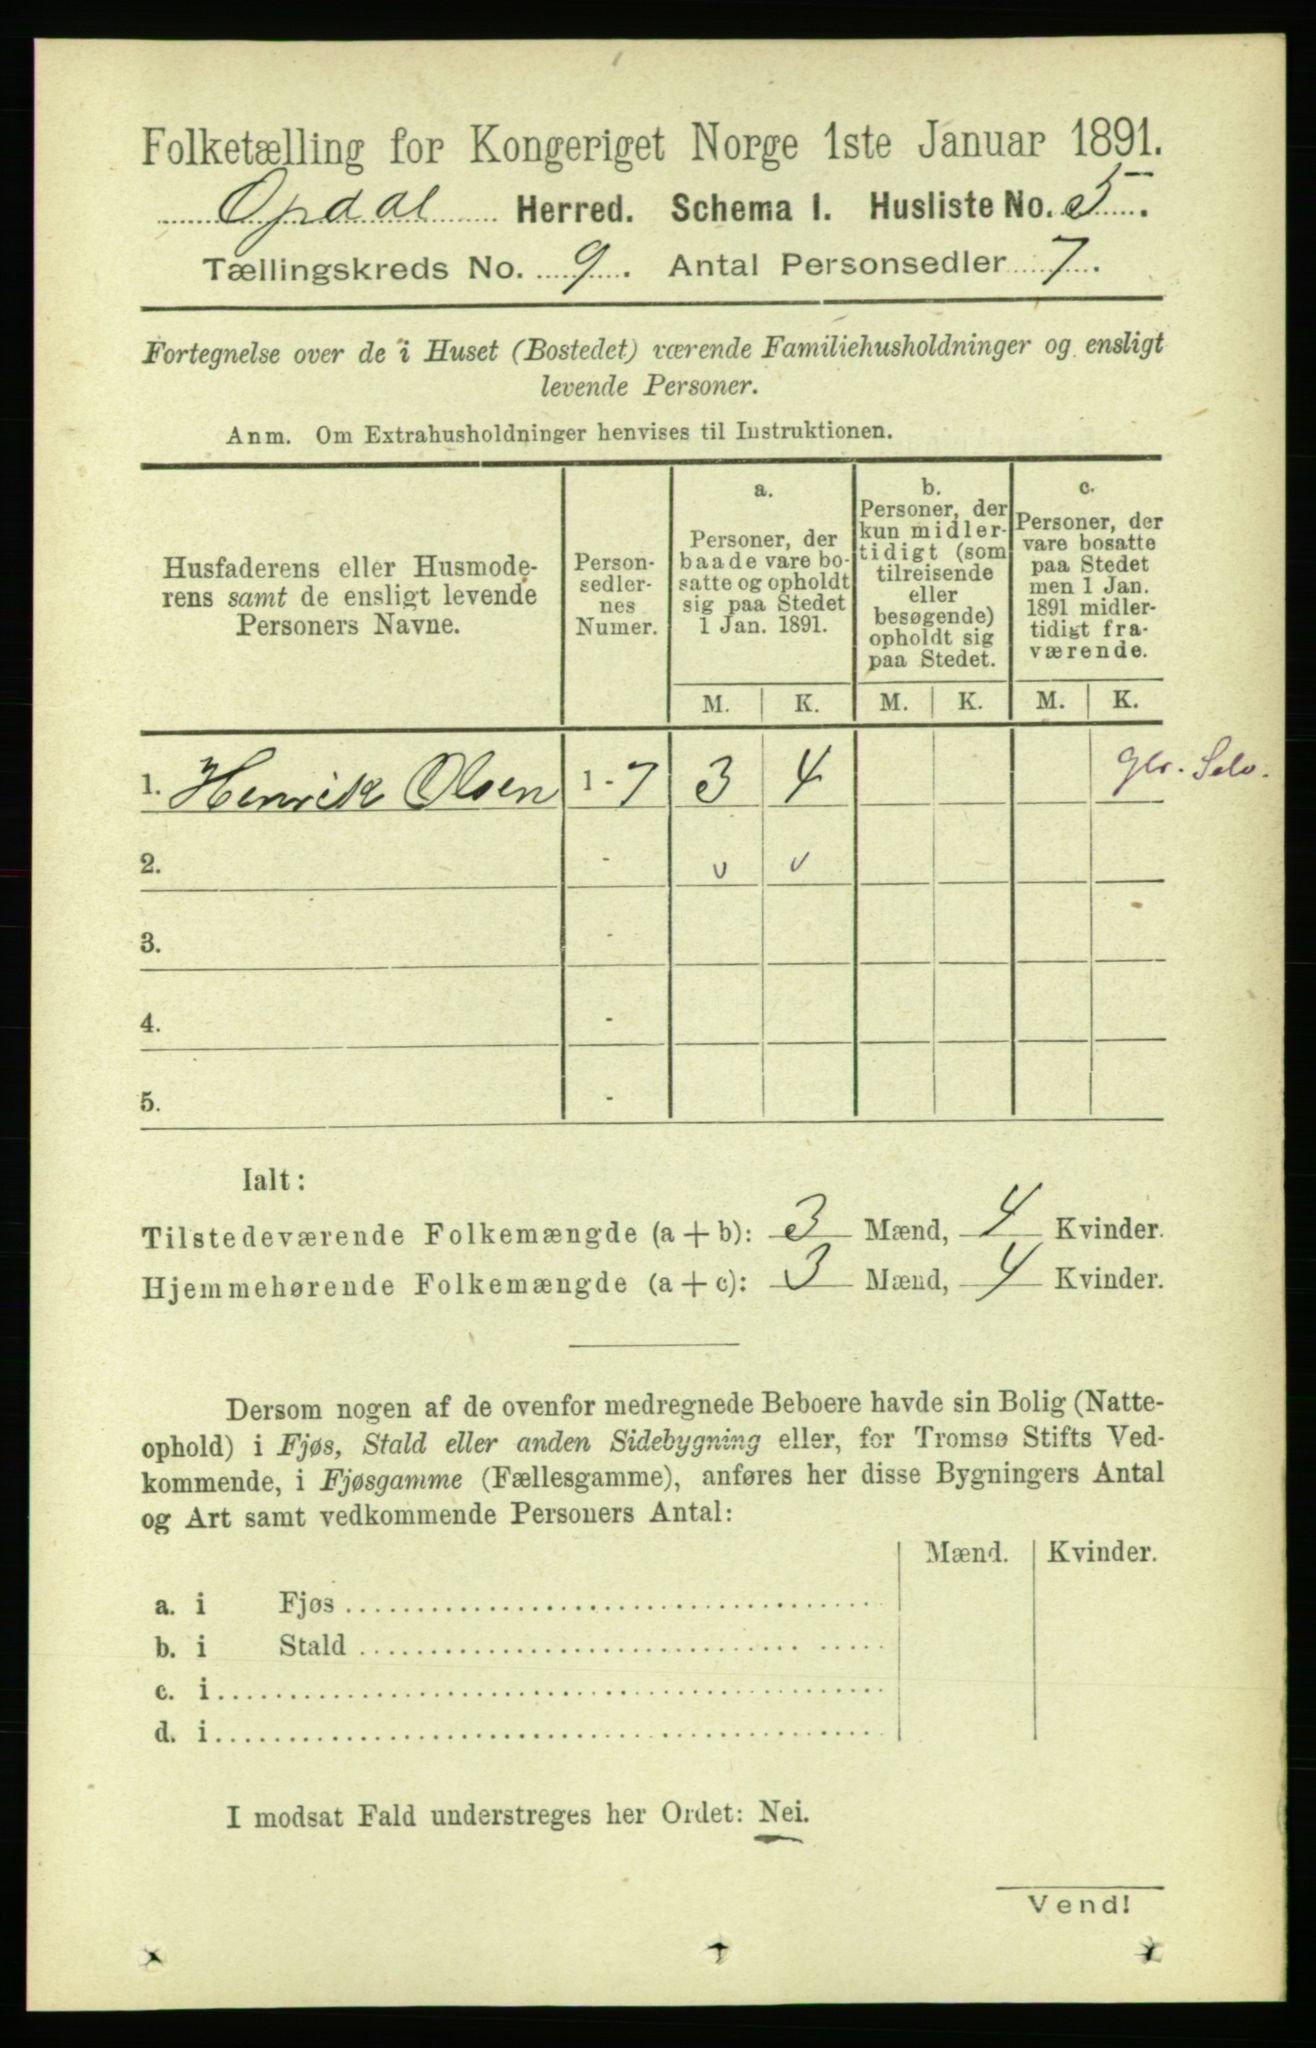 Folketælling for Kongeriget Norge 1ste Januar 1891.
Opdal Herred. Schema I. Husliste No. 5.
Tællingskreds No. 9. Antal Personsedler 7.
Fortegnelse over de i Huset (Bostedet) værende Familiehusholdninger og ensligt
levende Personer.
Anm. Om Extrahusholdninger henvises til Instruktionen.
Husfaderens eller Husmode-
rens samt de ensligt levende
Personers Navne.
Person-
sedler-
nes
Numer.
a.
Personer, der
baade vare bo-
satte og opholdt
sig paa Stedet
1 Jan. 1891.
b.
Personer, der
kun midler-
tidigt (som
tilreisende
eller
besøgende)
opholdt sig
paa Stedet.
c.
Personer, der
vare bosatte
paa Stedet
men 1 Jan.
1891 midler-
tidigt fra-
værende.
M. K. M. K. M. K.
1. Henrik Olsen 1 - 7 3 4 Selv.
2. - v v
3. -
4. -
5. -
Ialt:
Tilstedeværende Folkemængde (a + b): 3 Mænd, 4 Kvinder.
Hjemmehørende Folkemængde (a + c): 3 Mænd, 4 Kvinder.
Dersom nogen af de ovenfor medregnede Beboere havde sin Bolig (Natte-
ophold) i Fjøs, Stald eller anden Sidebygning eller, for Tromsø Stifts Ved-
kommende, i Fjøsgamme (Fællesgamme), anføres her disse Bygningers Antal
og Art samt vedkommende Personers Antal:
Mænd. Kvinder.
a. i Fjøs
b. i Stald
c. i
d. i
I modsat Fald understreges her Ordet: Nei.
Vend!